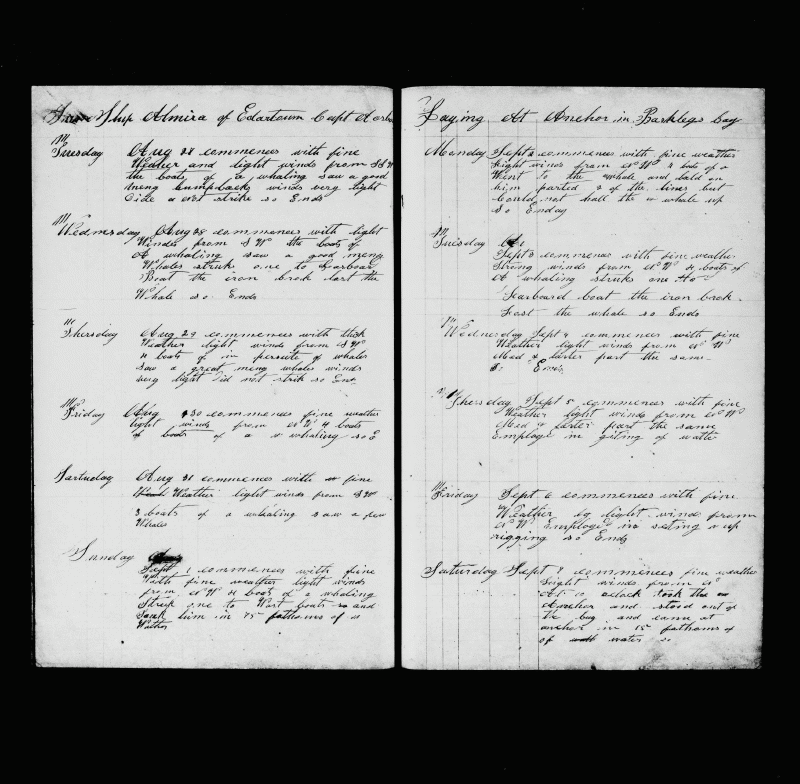 Ship Almira of Edartoum Capt
Tuesday Aug 28 commences with fine
Wether and light winds from SS W
the boats of a whaling saw a good
meng humpbacks winds very light
Did a not strike so Ends
Wednesday Aug 28 commences with light
Winds from S W the boats of
A whaling saw a good meng
Whales struk one to Larboar
Boat the iron brok lost the
Whale so Ends
Thersday Aug 29 commences with thick
Weather light winds from S W
4 boats of in persute of whales
Saw a great meng whales winds
very light did not strik so End
Friday Aug 30 commences fine weather
light winds from W 4 boats
of boats of a w whaling so E
Sartuday Aug 31 commences with fine
Weather light winds from S W
3 boats of a whaling saw a few
Whales
Sunday
Sept 1 commences with fine
With fine weather light winds
from N W 4 boats of a whaling
Struk one to Wast boats and
Sank him in 75 fathoms of w
Wather
Laying At Anchor in Barklegs bay
Monday Sept 2 commences with fine weather
Light winds from N W 2 boats of a
Went to the whale and hald on
him parted 2 of the lines but
Could not hall the w whale up
So Enday
Tuesday
Sept 3 commences with fine weathe
Strong winds from N W 4 boats of
A whaling struks one to
Starboard boat the iron brok
Lost the whale so Ends
Wednesday Sept 4 commences with fine
Weather light winds from N W
Med & later part the same
So Ends
Thersday Sept 5 commences with fine
Weather light winds from N W
Med & later part the same
Employe in giting of watte
Friday Sept 6 commences with fine
Weather light winds from
N W Employe in seting up
rigging so Ends
Saturday Sept 7 commences fine weathe
Light winds from N
At clock took the
Anchor and stood out of
the bay and came at
anchor in 15 fathoms of
of water so